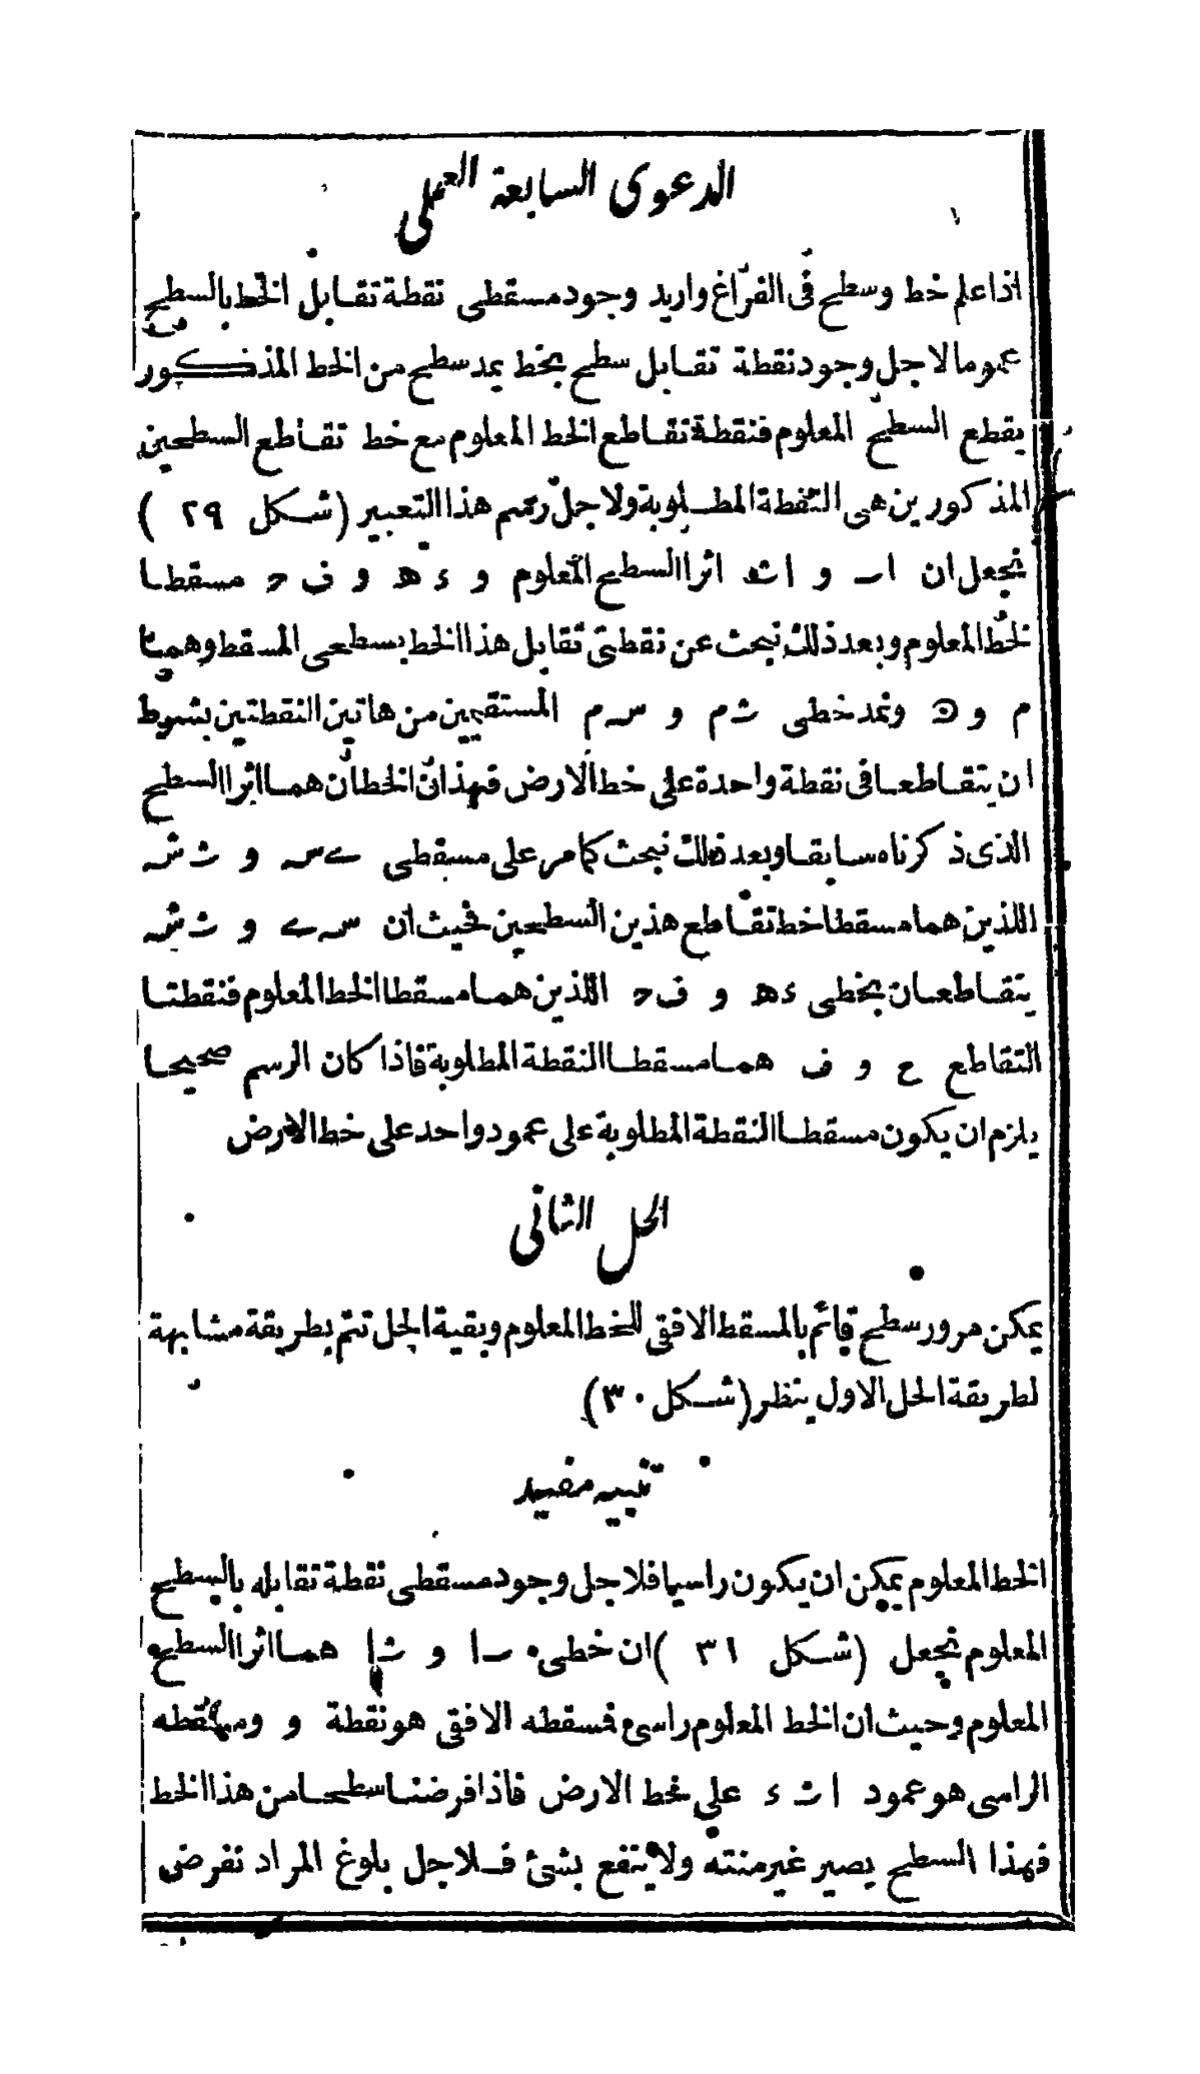 الدعوى السابعة العملى
اذا علم خط وسطح فى الفراغ واريد وجود مسقطى نقطة تقابل الخط بالسطح
عموما لاجل وجود نقطة تقابل سطح بخط يمد سطح من الخط المذكور
يقطع السطح المعلوم فنقطة تقاطع الخط المعلوم مع خط تقاطع السطحين
المذكورين هى النقطة المطلوبة ولاجل رسم هذا التعبير (شكل ٢٩)
نجعل ان اب و اث اثرا السطح المعلوم و ءه و ف ح مسقطا
الخط المعلوم وبعد ذلك نبحث عن نقطتى تقابل هذا الخط بسطحى المسقط وهما
م و ونمد خطى ث م و س م المستقيمين من هاتين النقطتين بشرط
ان يتقاطعا فى نقطة واحدة على خط الارض فهذان الخطان هما اثرا السطح
الذى ذكرناه سابقا وبعد ذلك نبحث كما مر على مسقطى ى س و ث ش
اللذين هما مسقطا خط تقاطع هذين السطحين فحيث ان س ى و ث ش
يتقاطعان بخطى ءه و ف ح اللذين هما مسقطا الخط المعلوم فنقطتا
التقاطع ع و ف هما مسقطا النقطة المطلوبة فاذا كان الرسم صحيحا
يلزم ان يكون مسقطا النقطة المطلوبة على عمود واحد على خط الارض
الحل الثانى
يمكن مرور سطح قائم بالمسقط الافقى للخط المعلوم وبقية الحل تتم بطريقة مشابهة
لطريقة الحل الاول ينظر (شكل ٣٠)
تنبيه مفيد
الخط المعلوم يمكن ان يكون راسيا فلاجل وجود مسقطى نقطة تقابله بالسطح
المعلوم نجعل (شكل ٣١) ان خطى ب ا و ث ا هما اثرا السطح
المعلوم وحيث ان الخط المعلوم راسى فمسقطه الافقى هو نقطة و ومسقطه
الراسى هو عمود ا ث ء على خط الارض فاذا فرضنا سطحا من هذا الخط
فهذا السطح يصير غير منته ولا ينتفع بشئ فلاجل بلوغ المراد نفرض